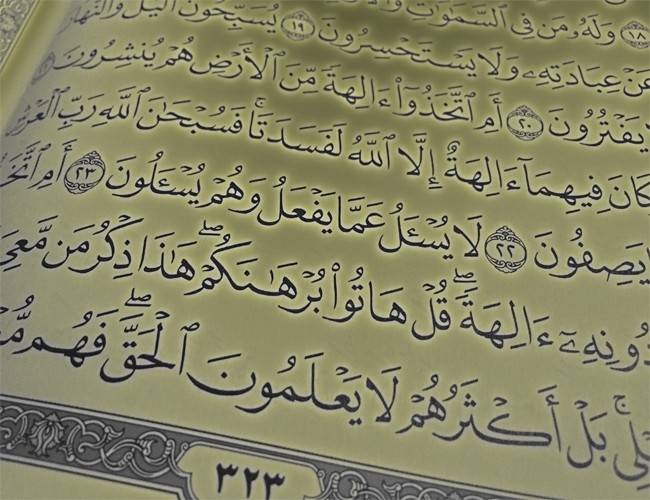 ١٨ وَلَهُۥ مَن فِى ٱلسَّمَٰوَٰتِ
عَنْ عِبَادَتِهِۦ وَلَا يَسْتَحْسِرُونَ ١٩ يُسَبِّحُونَ ٱلَّيْلَ وَٱلنَّهَارَ
لَا يَفْتُرُونَ ٢٠ أَمِ ٱتَّخَذُوٓا۟ ءَالِهَةً مِّنَ ٱلْأَرْضِ هُمْ يُنشِرُونَ
كَانَ فِيهِمَآ ءَالِهَةٌ إِلَّا ٱللَّهُ لَفَسَدَتَا ۚ فَسُبْحَٰنَ ٱللَّهِ رَبِّ ٱلْعَرْشِ
يَصِفُونَ ٢٢ لَا يُسْـَٔلُ عَمَّا يَفْعَلُ وَهُمْ يُسْـَٔلُونَ ٢٣ أَمِ ٱتَّخَ
دُونِهِۦٓ ءَالِهَةً ۖ قُلْ هَاتُوا۟ بُرْهَٰنَكُمْ ۖ هَٰذَا ذِكْرُ مَن مَّعِىَ
بَلْ أَكْثَرُهُمْ لَا يَعْلَمُونَ ٱلْحَقَّ ۖ فَهُم
٣٢٣